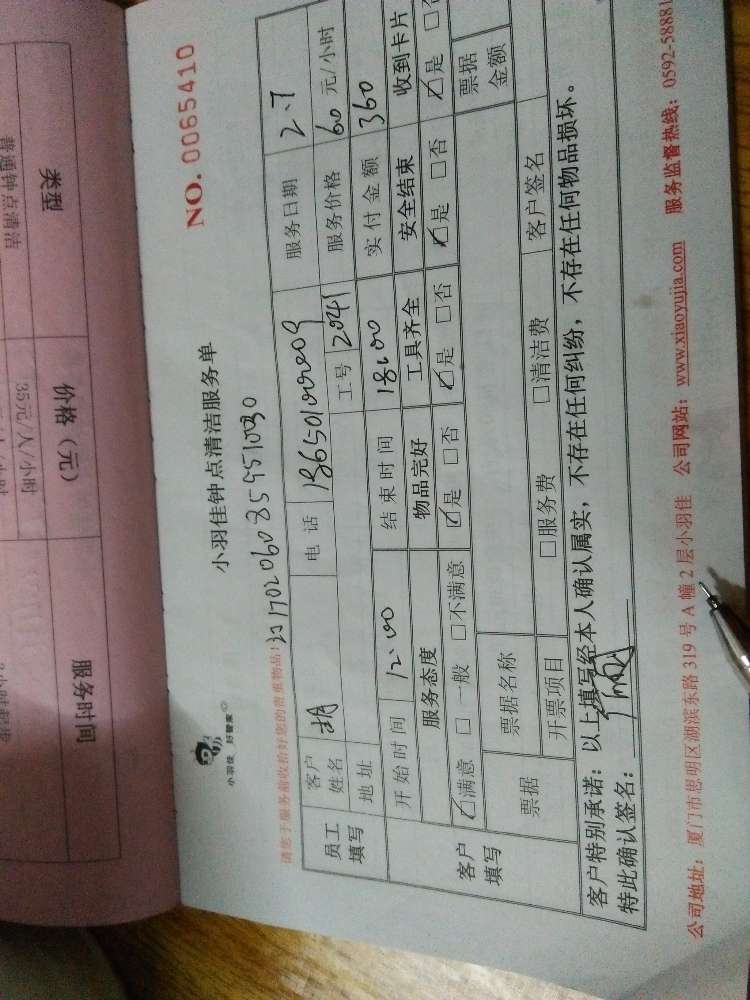 NO. 0065410
小羽佳 好管家
小羽佳钟点清洁服务单
请您于服务前收拾好您的贵重物品!
员工填写
客户姓名 胡 电话 服务日期 2.7
地址 工号 2041 服务价格 60 元/小时
开始时间 12:00 结束时间 18:00 实付金额 360
客户填写
服务态度 物品完好 工具齐全 安全结束 收到卡片
☑满意 □一般 □不满意 ☑是 □否 ☑是 □否 ☑是 □否 ☑是
票据 票据名称 票据金额
开票项目 □服务费 □清洁费 客户签名
客户特别承诺:以上填写经本人确认属实,不存在任何纠纷,不存在任何物品损坏。
特此确认签名:
公司地址:厦门市思明区湖滨东路 319 号 A 幢 2 层小羽佳 公司网站:www.xiaoyujia.com 服务监督热线:0592-58881
类型 价格(元) 服务时间
普通钟点清洁 35元/人/小时